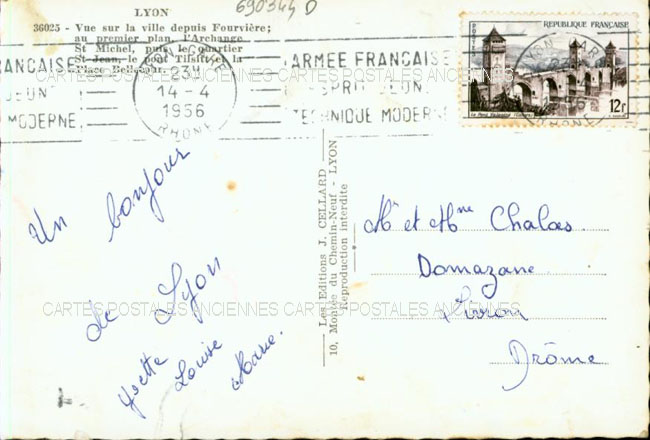 690344 D
LYON
36025 - Vue sur la ville depuis Fourvière;
au premier plan, l'Archange
St Michel, puis le quartier
St-Jean, le pont Tilsitt et la
Place Bellecour.
RÉPUBLIQUE FRANÇAISE
POSTES
12f
Le Pont Valentré
ARMÉE FRANÇAISE
ESPRIT JEUNE
TECHNIQUE MODERNE
LYON GARE
23H
14-4
1956
RHONE
ARMÉE FRANÇAISE
ESPRIT JEUNE
TECHNIQUE MODERNE
LYON GARE
1956
RHONE
Un bonjour
de Lyon
Yvette
Louise
Marie.
Les Editions J. CELLARD
10, Montée du Chemin-Neuf - LYON
Reproduction interdite
Mr et Mme Chalas
Domazane
Livron
Drôme
CARTES POSTALES ANCIENNES CARTES POSTALES ANCIENNES
CARTES POSTALES ANCIENNES CARTES POSTALES ANCIENNES